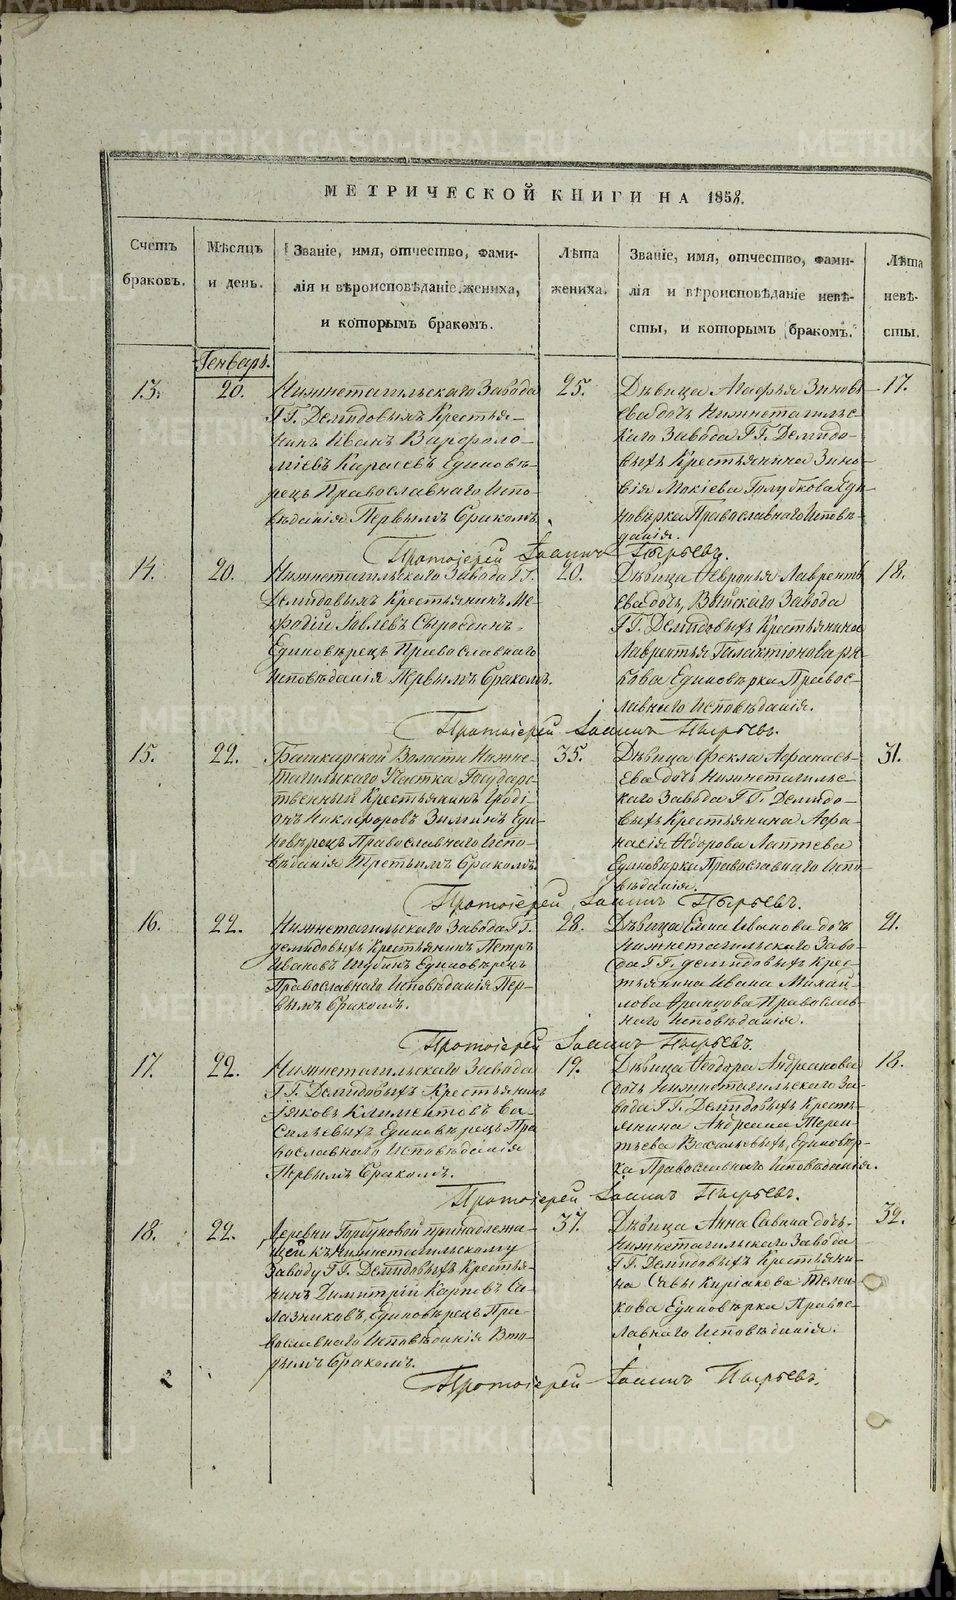 METRIKI.GASO-URAL.RU
МЕТРИЧЕСКОЙ КНИГИ НА 1858.
Счетъ браковъ.
Мѣсяцъ и день.
Званіе, имя, отчество, фами-
лія и вѣроисповѣданіе жениха,
и которымъ бракомъ.
Лѣта жениха.
Званіе, имя, отчество, фами-
лія и вѣроисповѣданіе невѣ-
сты, и которымъ бракомъ.
Лѣта невѣ-
сты.
Генварь.
13.
20.
Нижнетагильскаго Завода
ГГ. Демидовыхъ Крестья-
нинъ Иванъ Варфоло-
міевъ Караевъ Единовѣ-
рецъ Православнаго Испо-
вѣданія Первымъ бракомъ
25.
Дѣвица Агафья Зиновь
ева дочь Нижнетагильс-
каго Завода ГГ. Демидо-
выхъ Крестьянина Зино-
вія Мокіева Голубкова Еди-
новѣрка Православнаго Исповѣ-
данія.
17.
Протоіерей Іоаннъ Пырьевъ.
14.
20.
Нижнетагильскаго Завода ГГ.
Демидовыхъ Крестьянинъ Ме-
фодій
Единовѣрецъ Православнаго
Исповѣданія Первымъ бракомъ.
20.
Дѣвица Февронья Лавренть
ева дочь, Выйскаго Завода
ГГ. Демидовыхъ Крестьянина
Лаврентья Галактіонова
Единовѣрка Правос-
лавнаго Исповѣданія.
18.
Протоіерей Іоаннъ Пырьевъ.
15.
22.
Башкарской Волости Нижне-
тагильскаго Участка Государс-
твенный Крестьянинъ Иродi-
онъ Никифоровъ Зиминъ Еди-
новѣрецъ Православнаго Испо-
вѣданія Третьимъ бракомъ.
35.
Дѣвица Фекла Афанась-
ева дочь Нижнетагильс-
каго Завода ГГ. Демидо-
выхъ Крестьянина Афа-
насія Федорова Лаптева
Единовѣрка Православнаго Испо-
вѣданія.
31.
Протоіерей Іоаннъ Пырьевъ.
16.
22.
Нижнетагильскаго Завода ГГ.
Демидовыхъ Крестьянинъ Петръ
Ивановъ Шубинъ Единовѣрецъ
Православнаго Исповѣданія Пер-
вымъ бракомъ.
28.
Дѣвица Анна Иванова дочь
Нижнетагильскаго Заво-
да ГГ. Демидовыхъ Крес-
тьянина Ивана Михай-
лова Православ-
наго Исповѣданія.
21.
Протоіерей Іоаннъ Пырьевъ.
17.
22.
Нижнетагильскаго Завода
ГГ. Демидовыхъ Крестьянинъ
Іаковъ Климентовъ Ва-
сильевыхъ Единовѣрецъ Пра
вославнаго Исповѣданія
Первымъ бракомъ.
19.
Дѣвица Феодора Андреанова
дочь Нижнетагильскаго За-
вода ГГ. Демидовыхъ Кресть-
янина Андреана Терен-
тьева Васильевыхъ, Единовѣр-
ка Православнаго Исповѣданія.
18.
Протоіерей Іоаннъ Пырьевъ.
18.
22.
Деревни Горбуновой принадлежа-
щей къ Нижнетагильскому
Заводу ГГ. Демидовыхъ Крестья-
нинъ Димитрій Карповъ Са-
лазниковъ, Единовѣрецъ Пра-
вославнаго Исповѣданія Вто-
рымъ бракомъ.
37.
Дѣвица Анна Савина дочь
Нижнетагильскаго Завода
ГГ. Демидовыхъ Крестьяни-
на Савы Киріакова Телен-
кова Единовѣрка Правос-
лавнаго Исповѣданія.
32.
Протоіерей Іоаннъ Пырьевъ.